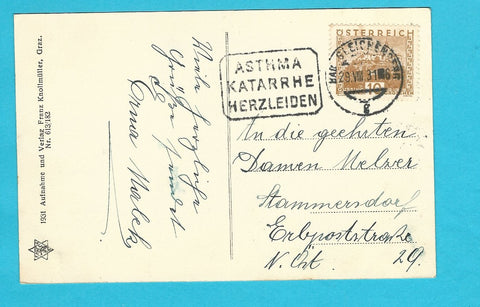 1931 Aufnahme und Verlag Franz Knollmüller, Graz.
Nr. 613/183
Viele herzliche
Grüße
Erna
ÖSTERREICH
BAD GLEICHENBERG
28 VIII 31
10
ASTHMA
KATARRHE
HERZLEIDEN
An die geehrten
Damen Melzer
Stammersdorf
Erbpoststraße
N. Öst. 29.